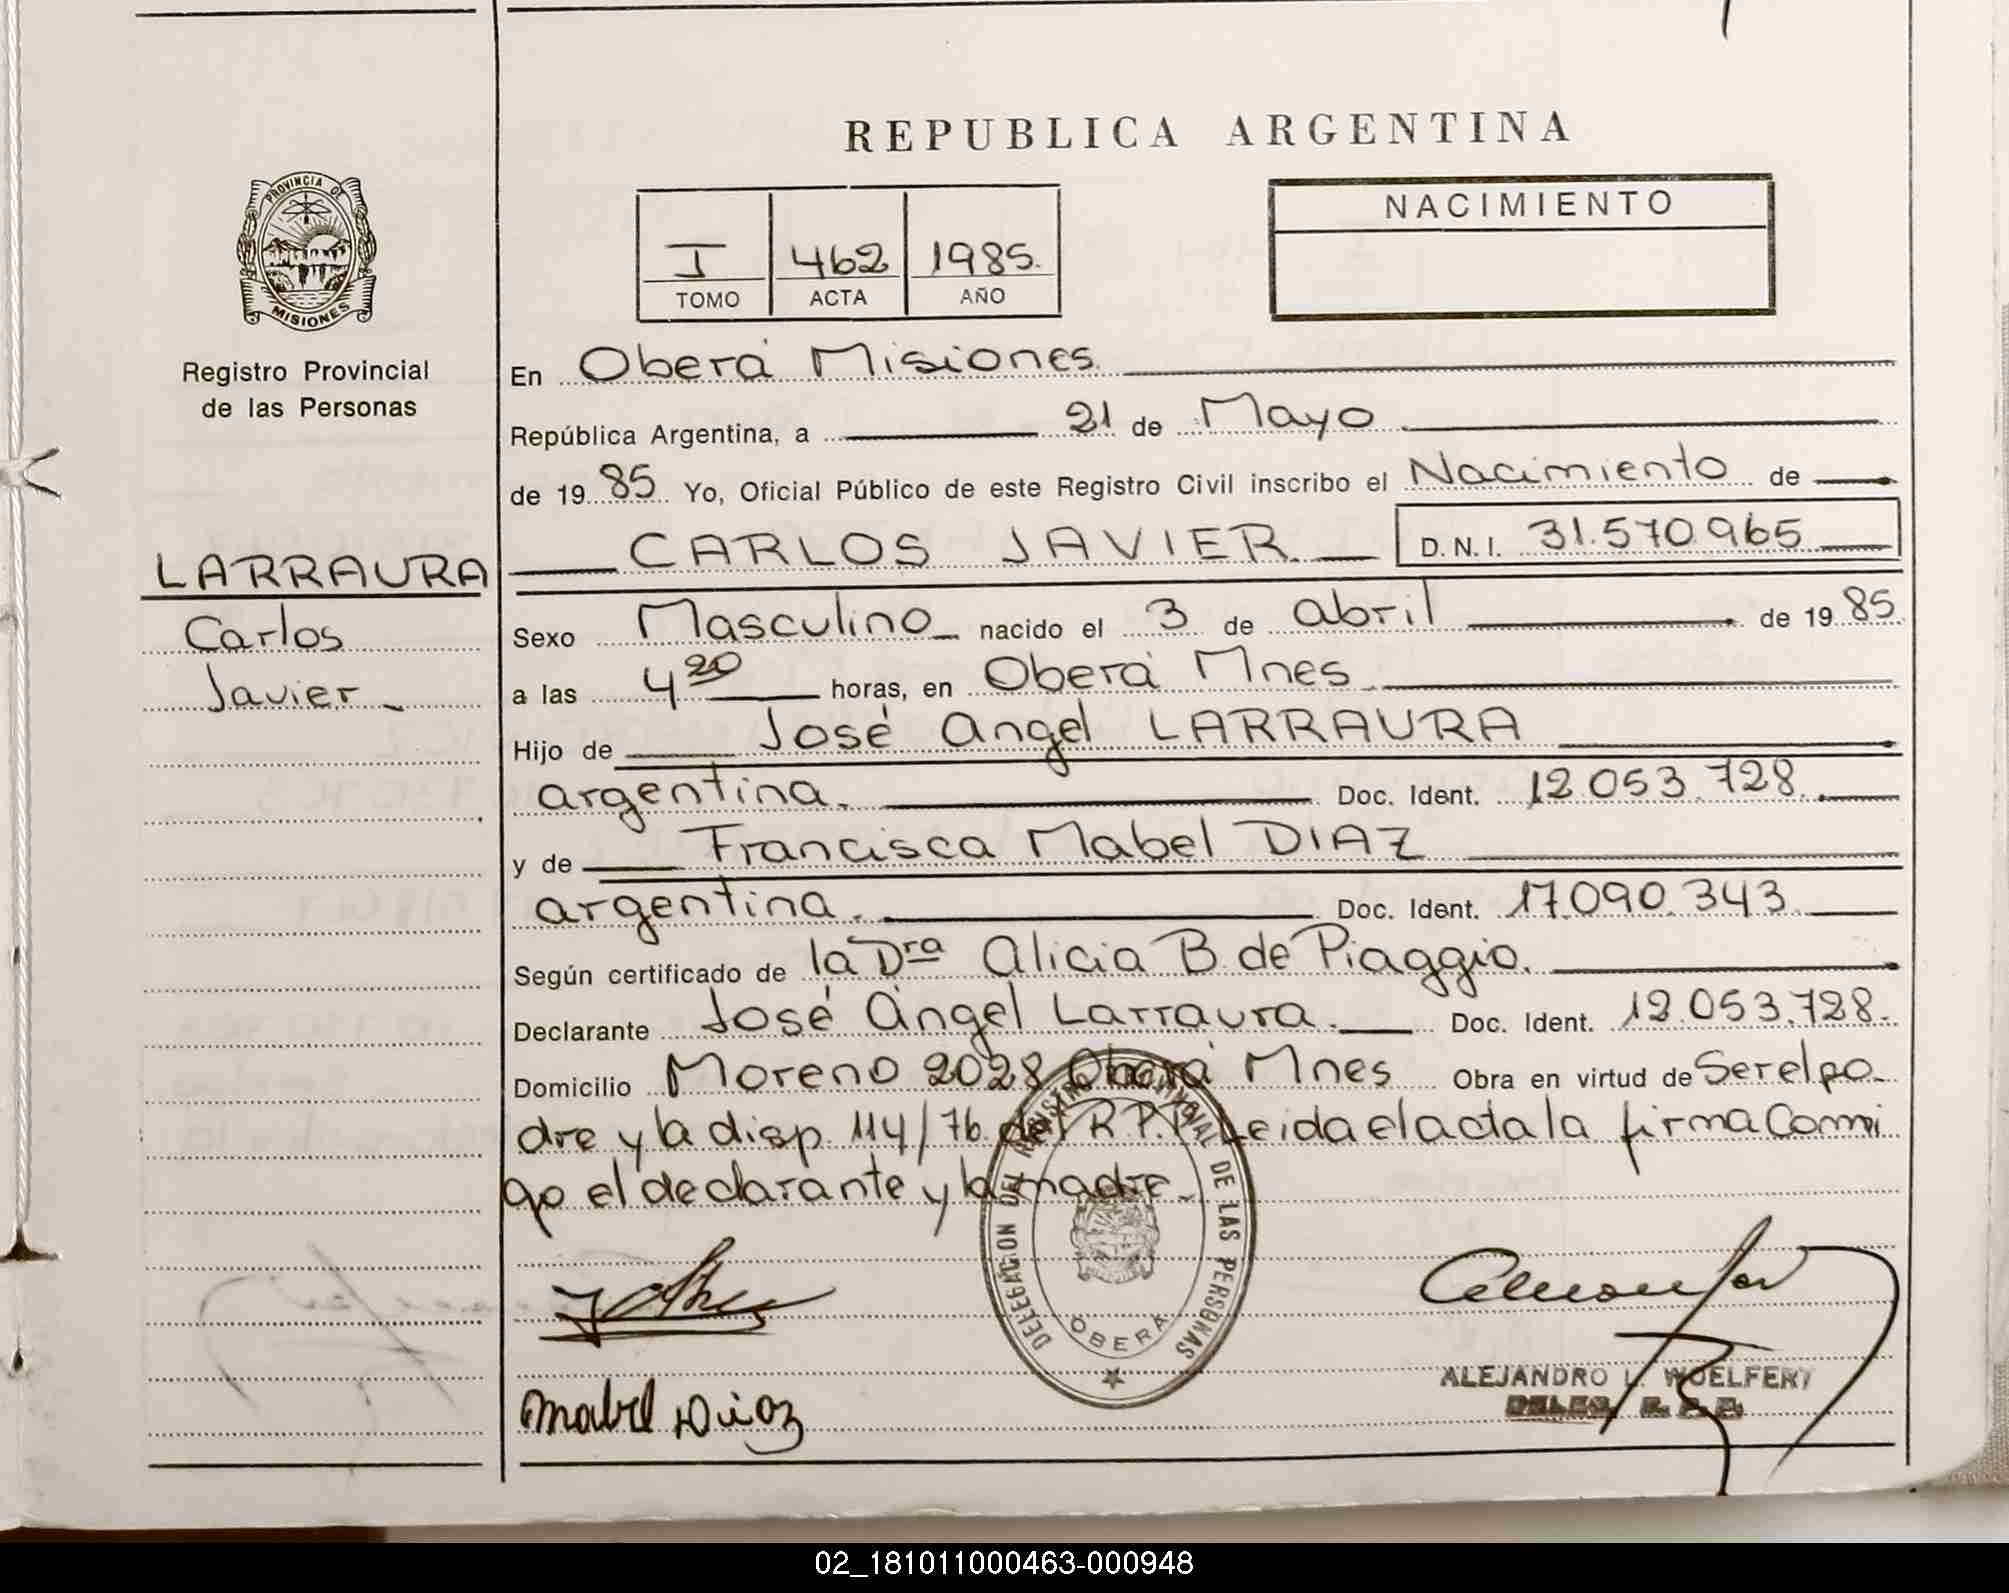 REPUBLICA ARGENTINA
PROVINCIA DE
MISIONES
Registro Provincial
de las Personas
I 462 1985.
TOMO ACTA AÑO
NACIMIENTO
En Oberá Misiones.
República Argentina, a 21 de Mayo
de 1985 Yo, Oficial Público de este Registro Civil inscribo el Nacimiento de
LARRAURA
Carlos
Javier
CARLOS JAVIER D.N.I. 31.570.965
Sexo Masculino nacido el 3 de abril de 1985
a las 4 20 horas, en Oberá Mnes
Hijo de José Angel LARRAURA
argentina. Doc. Ident. 12.053.728
y de Francisca Mabel DIAZ
argentina. Doc. Ident. 17.090.343
Según certificado de la Dra Alicia B. de Piaggio.
Declarante José Angel Larraura. Doc. Ident. 12.053.728.
Domicilio Moreno 2028 Oberá Mnes Obra en virtud de Ser el pa
dre y la disp. 114/76 del R.P.P. Leida el acta la firma Conmi
go el declarante y la madre.
DELEGACION DEL REGISTRO PROVINCIAL DE LAS PERSONAS
OBERÁ
Mabel Diaz
ALEJANDRO L. WOELFERT
DELEG. R. P. P.
02_181011000463-000948